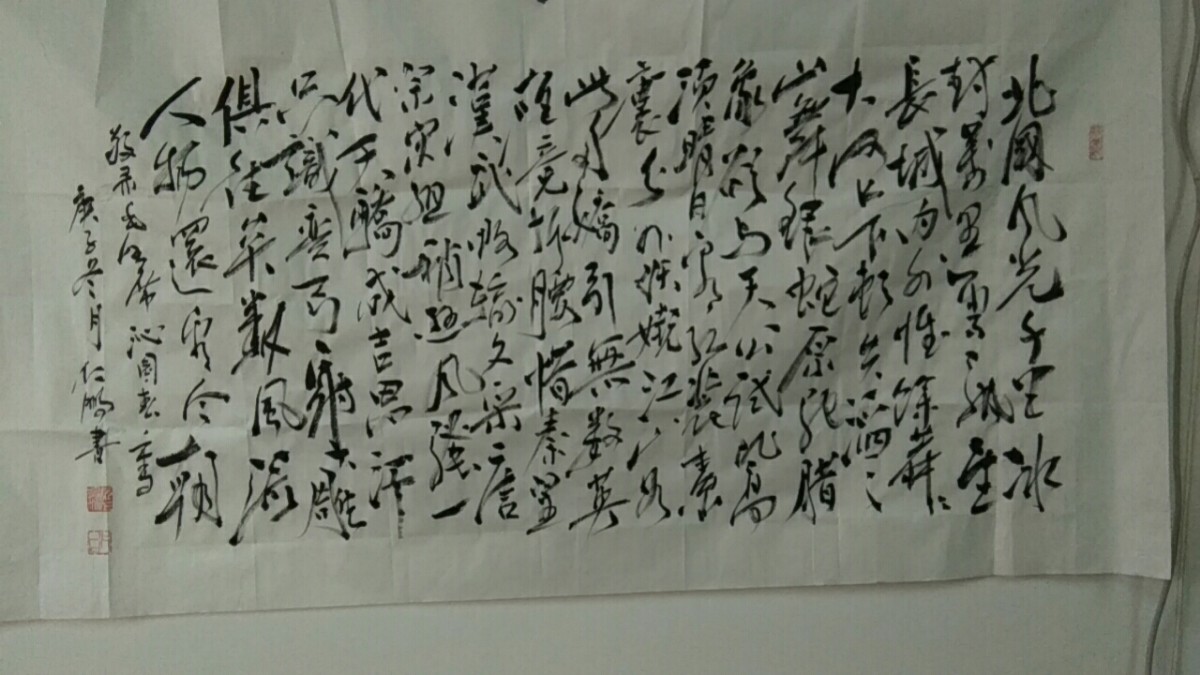 北國风光千里冰
封萬里雪飄望
長城内外惟餘莽々
大河上下頓失滔々
山舞銀蛇原馳腊
象欲与天公試比高
須晴日看红裝素
裹分外妖嬈江山如
此多嬌引無数英
雄竞折腰惜秦皇
漢武略輸文采唐
宗宋祖稍遜风骚一
代天驕成吉思汗
只識彎弓射大雕
俱往矣數風流
人物還看今朝
敬录毛主席沁園春雪
庚子冬月仁鵬書